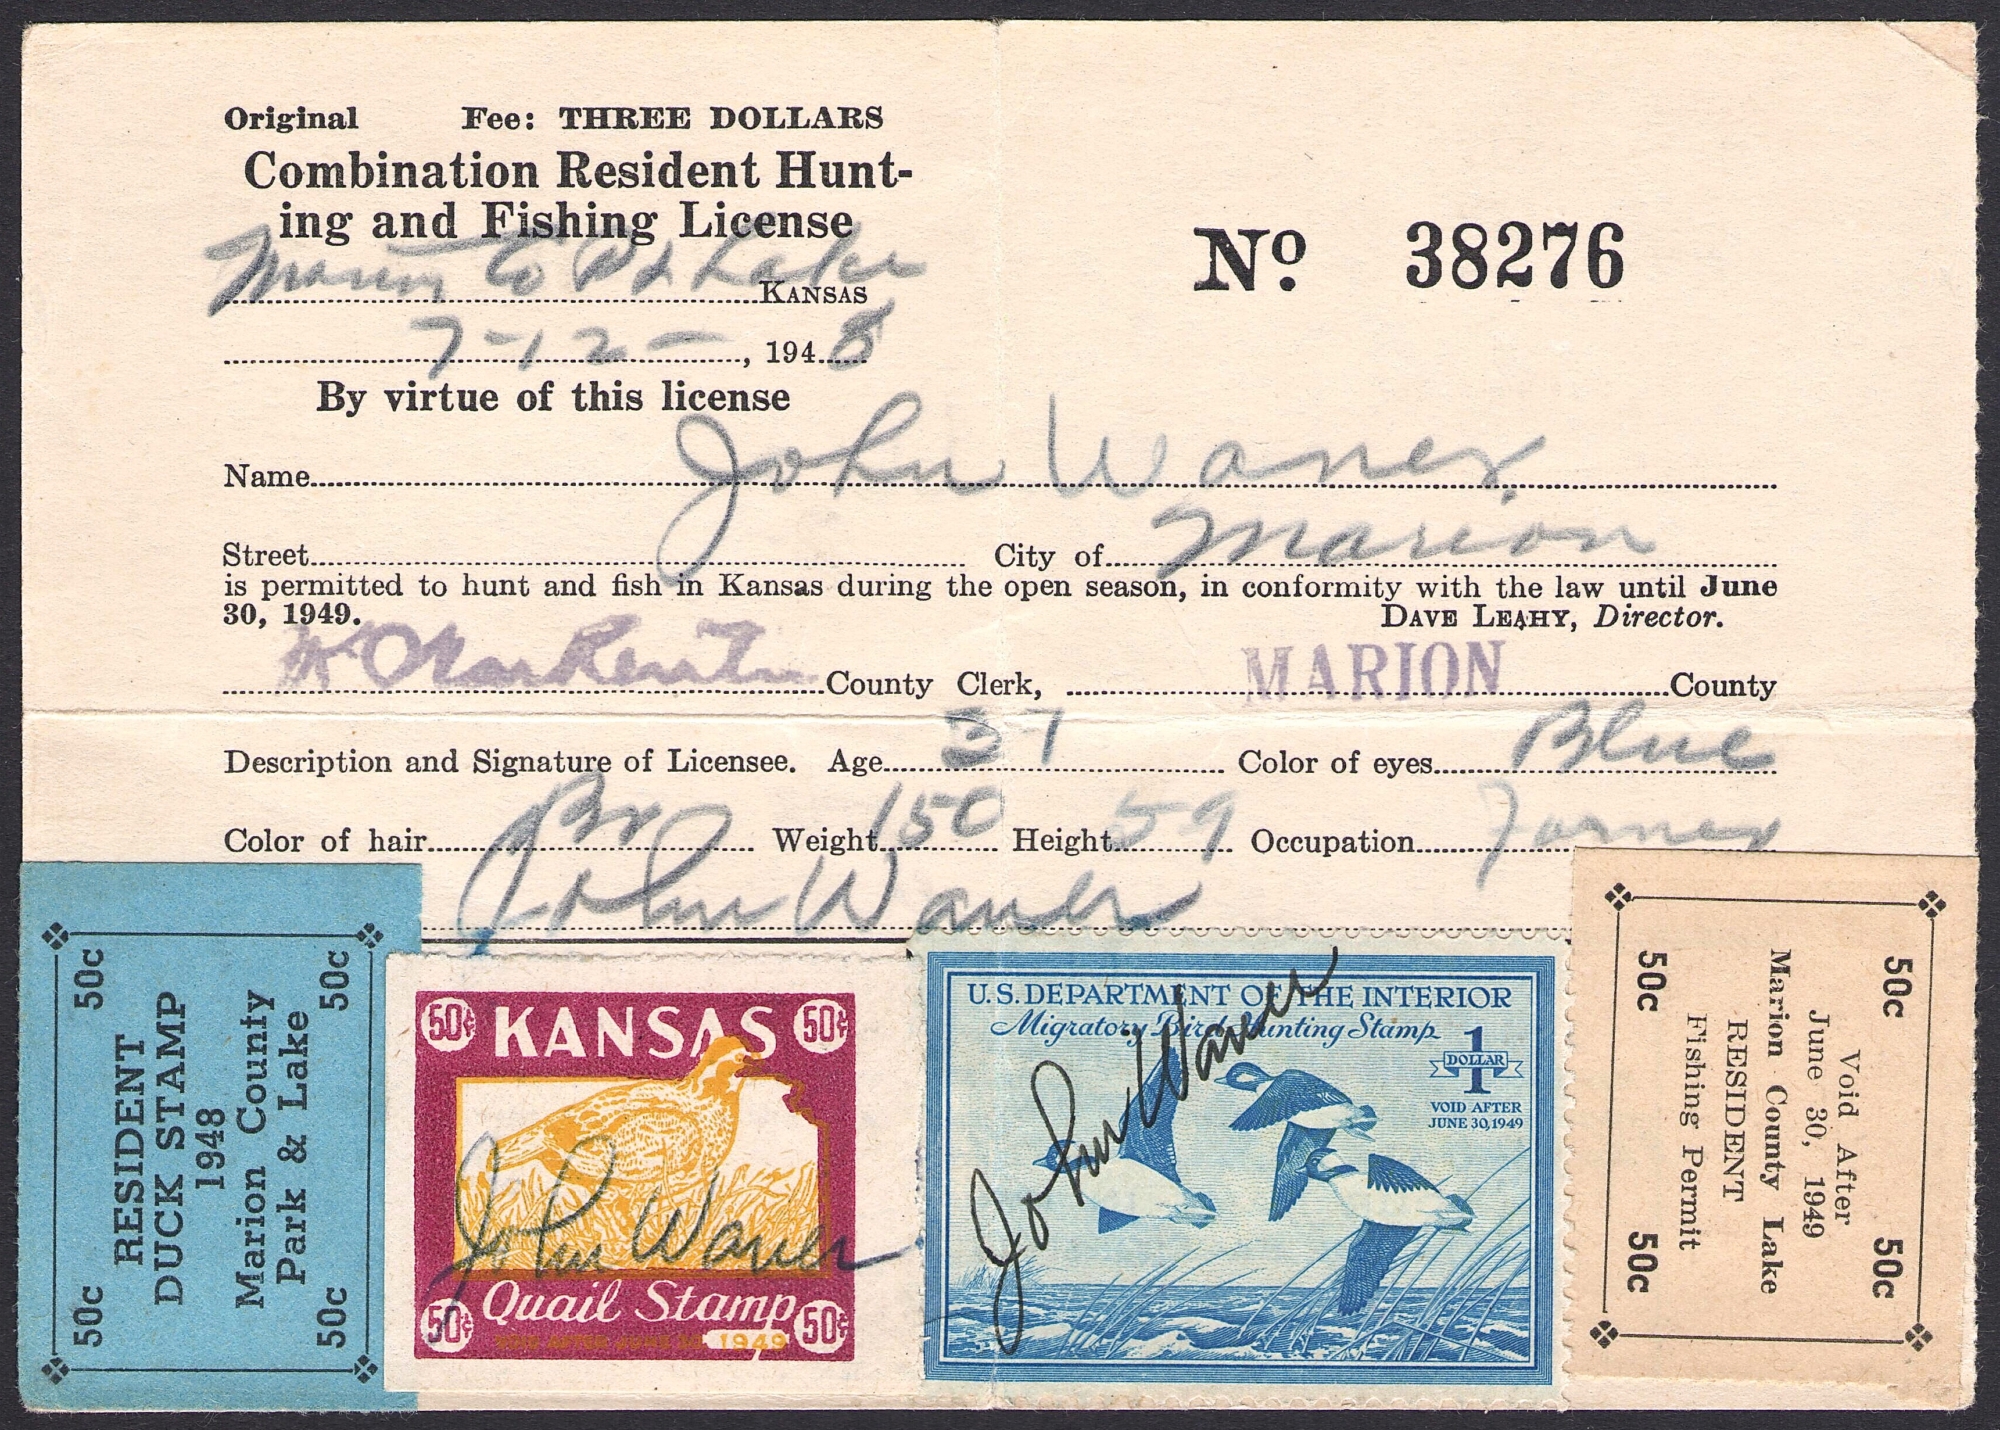 Original Fee: THREE DOLLARS
Combination Resident Hunt-
ing and Fishing License
Marion Co Pk & Lake KANSAS
7-12-, 1948
By virtue of this license
Name John Waner
Street City of Marion
is permitted to hunt and fish in Kansas during the open season, in conformity with the law until June
30, 1949. DAVE LEAHY, Director.
County Clerk, MARION County
Description and Signature of Licensee. Age 37 Color of eyes Blue
Color of hair Br Weight 150 Height 59 Occupation Farmer
John Waner
No. 38276
50c 50c
RESIDENT
DUCK STAMP
1948
Marion County
Park & Lake
50c 50c
50¢ KANSAS 50¢
John Waner
50¢ Quail Stamp 50¢
VOID AFTER JUNE 30, 1949
U.S. DEPARTMENT OF THE INTERIOR
Migratory Bird Hunting Stamp
1
DOLLAR
VOID AFTER
JUNE 30, 1949
John Waner
50c 50c
Void After
June 30, 1949
Marion County Lake
RESIDENT
Fishing Permit
50c 50c